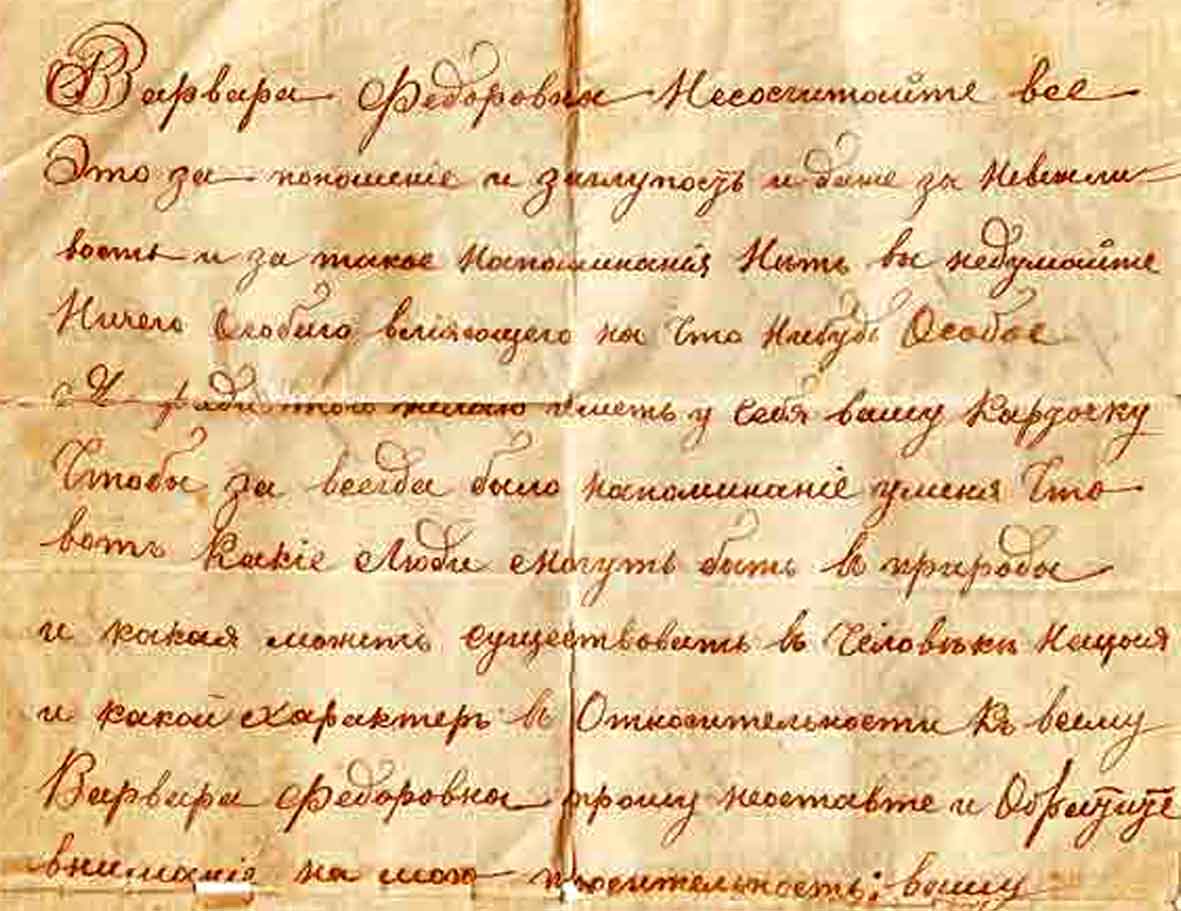 Варвара Федоровна Несосчитайте все
Это за поношеніе и заглупость и даже за Невежли
вость и за такое Напоминанія Нить вы недумайте
Ничего Особаго вліяющего на Что Нибудь Особое
Я желаю иметь у Себя вашу Кардочку
Чтобы за всегда было напоминаніе уменя Что
вотъ Какіе Люди Могутъ быть въ природы
и какая можитъ существовать въ Человѣки Нацыя
и какой Характеръ въ Относительности Къ всему
Варвара Федоровна прошу неоставте и Обратите
вниманія на мою просительность: вашу